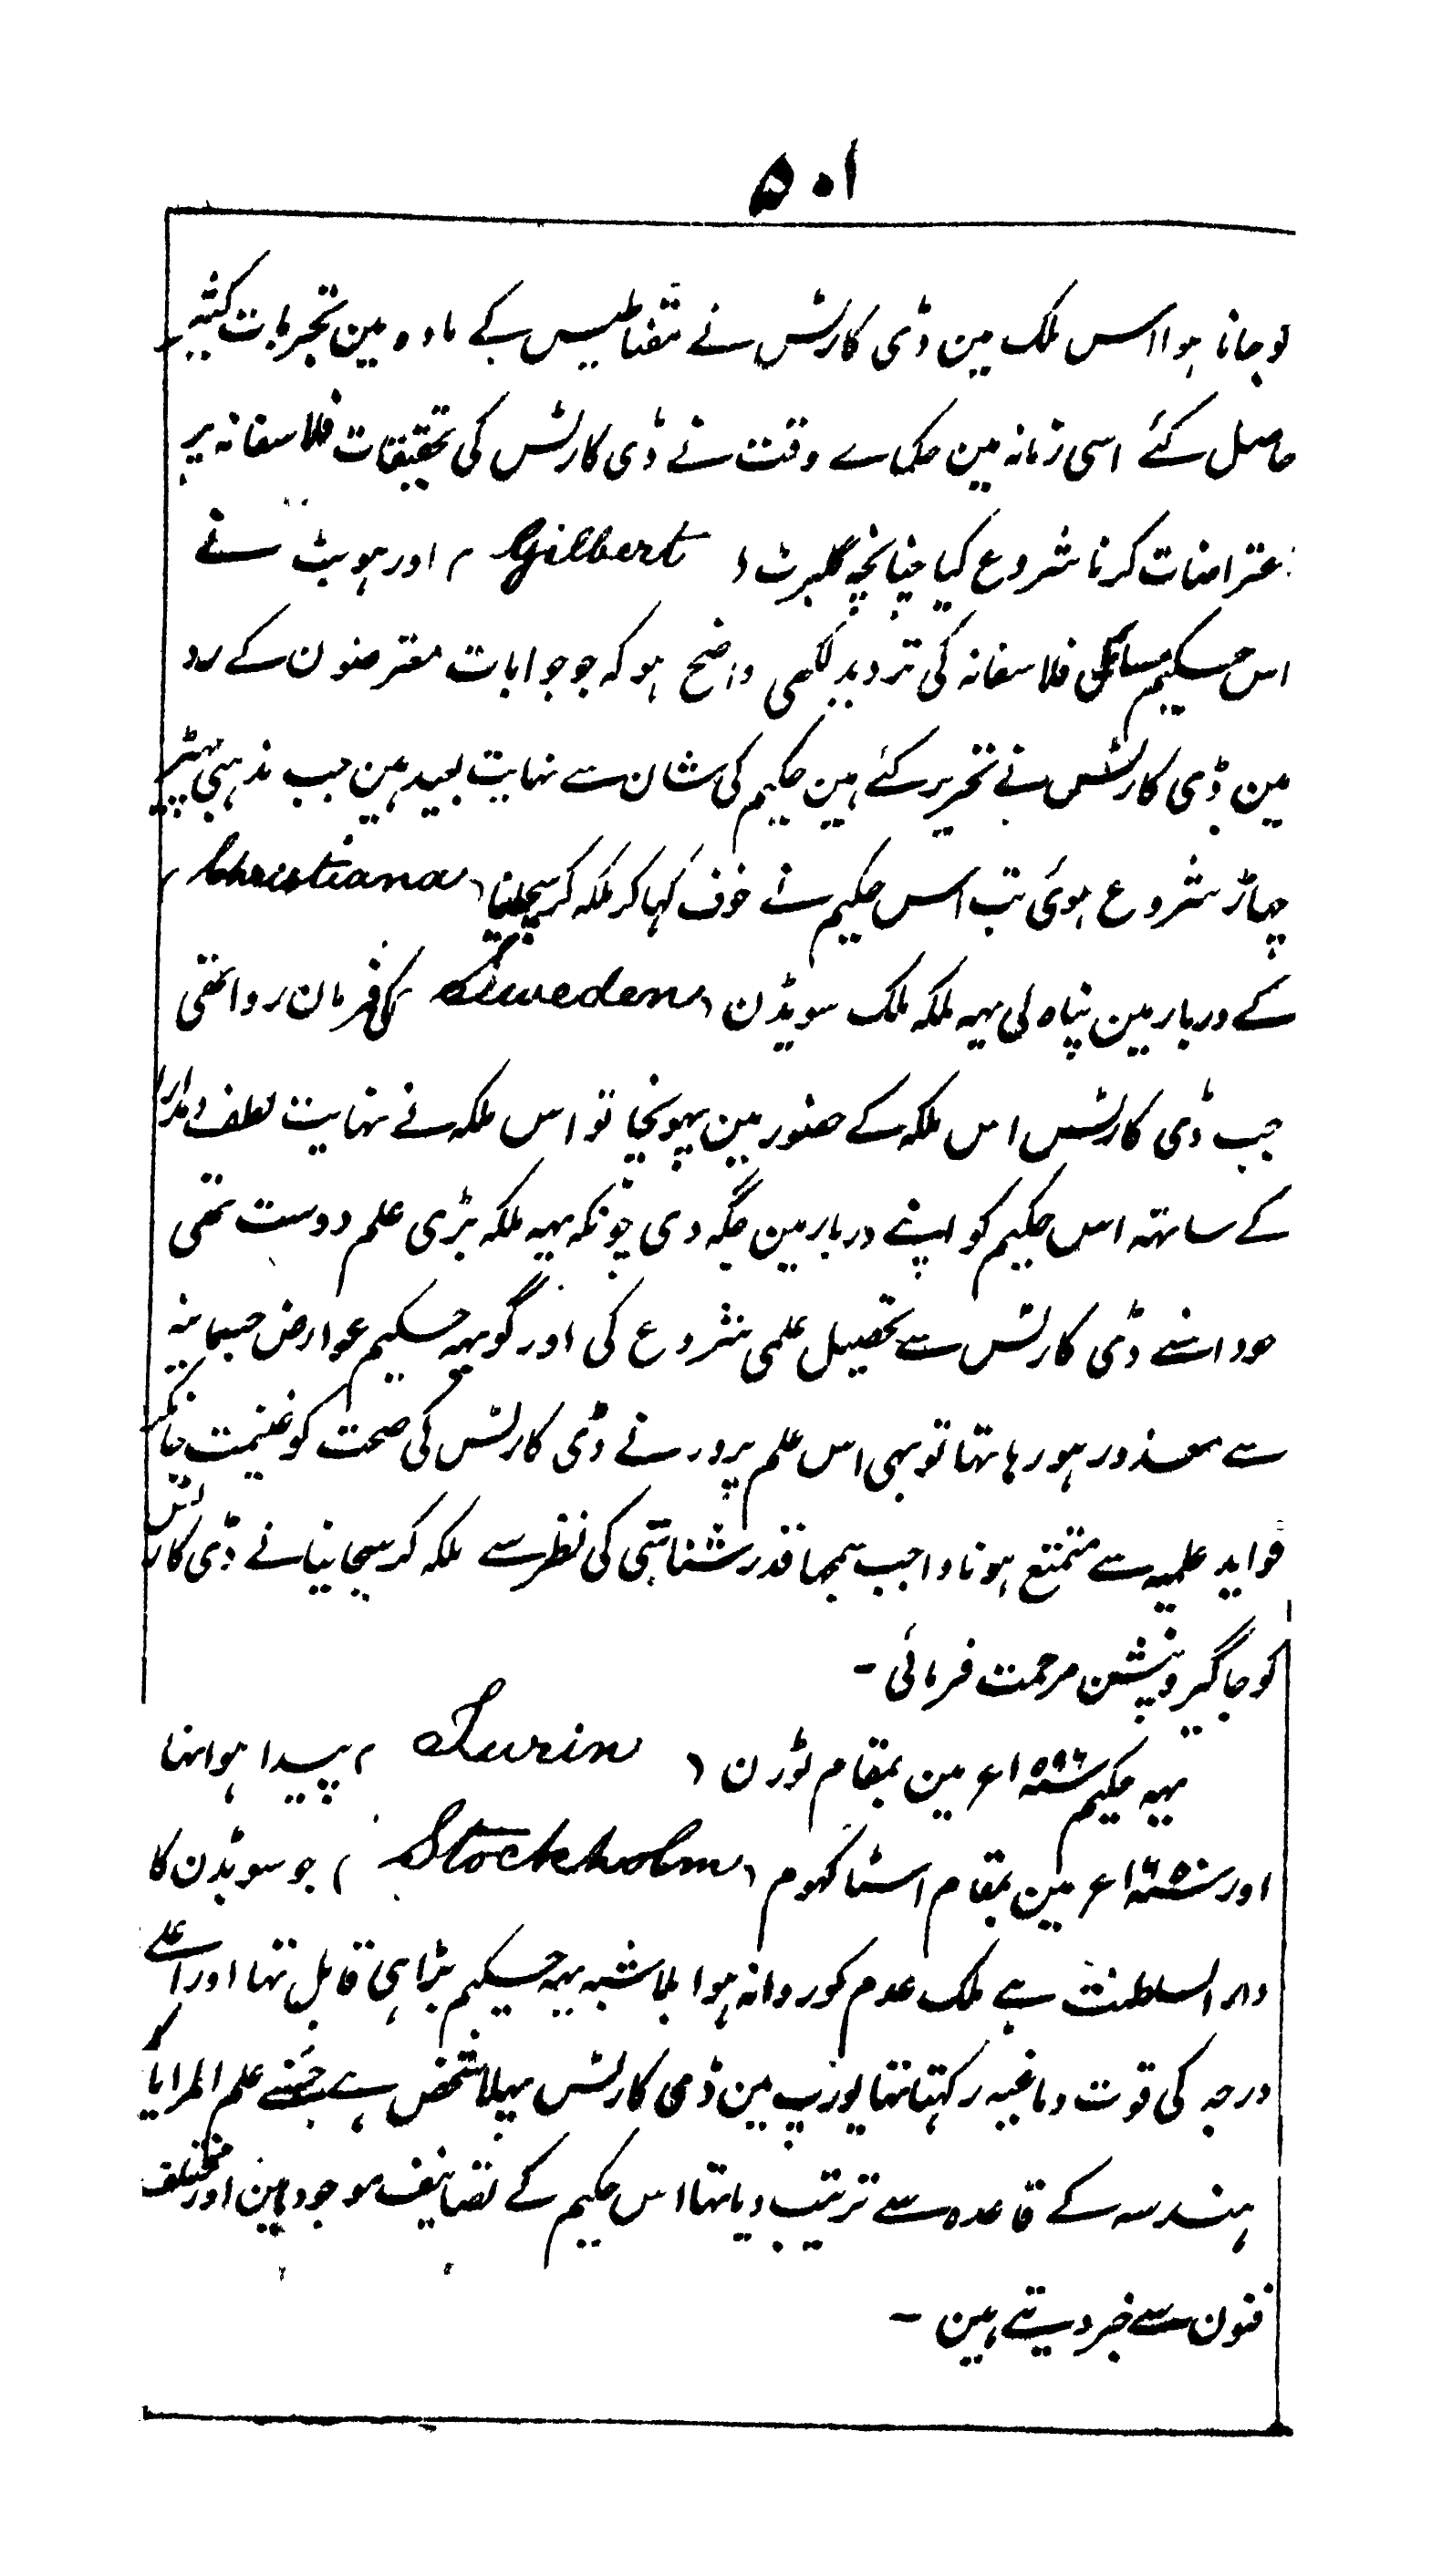 ۵۰۱
کو جانا ہوا اس ملک مین ڈی کارٹس نے مقناطیس کے مادہ مین تجربات کثیر
حاصل کئے اسی زمانہ مین حکماے وقت نے ڈی کارٹس کی تحقیقات فلاسفانہ پر
اعتراضات کرنا شروع کیا چنانچہ گلبرٹ ( Gilbert ) اور ہوبٹ نے
اس حکیم مسائل فلاسفانہ کی تردید لکھی واضح ہو کہ جو جوابات معترضون کے رد
مین ڈی کارٹس نے تحریر کئے ہین حکیم کی شان سے نہایت بعید ہین جب مذہبی چھیڑ
چھاڑ شروع ہوئی تب اس حکیم نے خوف کہا کر ملکہ کرسچانیا ( Christiana )
کے دربار مین پناہ لی یہہ ملکہ ملک سویڈن ( Sweden ) کی فرمان روا تھی
جب ڈی کارٹس اس ملکہ کے حضور مین پہونچا تو اس ملکہ نے نہایت لطف و مدارا
کے ساتہہ اس حکیم کو اپنے دربار مین جگہ دی چونکہ یہہ ملکہ بڑی علم دوست تھی
خود اسنے ڈی کارٹس سے تحصیل علمی شروع کی اور گو یہہ حکیم عوارض جسمانیہ
سے معذور ہو رہا تہا تو بہی اس علم پرور نے ڈی کارٹس کی صحت کو غنیمت جانکر
فواید علمیہ سے متمتع ہونا واجب سمجہا قدر شناسی کی نظر سے ملکہ کرسچانیا نے ڈی کارٹس
کو جاگیر و پنشن مرحمت فرمائی -
یہہ حکیم ۱۵۹۶ء مین بمقام ٹورن ( Turin ) پیدا ہوا تہا
اور ۱۶۵۰ء مین بمقام اسٹاکہوم ( Stockholm ) جو سویڈن کا
دار السلطنت ہے ملک عدم کو روانہ ہوا بلاشبہ یہہ حکیم بڑا ہی قابل تہا اور اعلے
درجہ کی قوت دماغیہ رکہتا تہا یورپ مین ڈی کارٹس پہلا شخص ہے جسنے علم المرایا کو
ہندسہ کے قاعدہ سے ترتیب دیا تہا اس حکیم کے تصانیف موجود ہین اور مختلف
فنون سے خبر دیتے ہین -